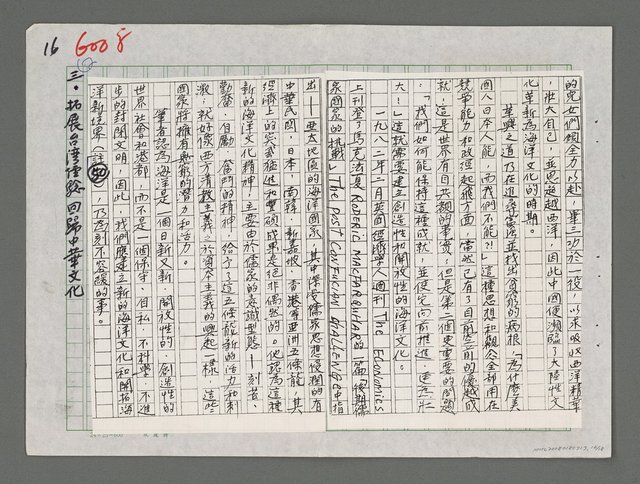 16
6008
的兒女們傾全力以赴，畢三功於一役，以求吸收西洋精華
，壯大自己，並思超越西洋，因此中國便瀕臨了大陸性文
化革新為海洋文化的時期。
革興之道乃在進尋並找出貧窮的病根，「為什麼美
國人日本人能，而我們不能？」這種思想和觀念全部用在
競爭能力和政經起飛方面，當然已有了目前空前的優越成
就，這是世界有目共睹的事實，但是第二個更重要的問題
：「我們如何能保持這種成就，並使它向前推進，更為壯
大？」這就需要建立創造性和開放性的海洋文化。
一九八二年二月英國經濟學人週刊 The Economics
上刊登了馬克法夸 RODERIC MACFARQUHAR 的一篇「後期儒
家國家的挑戰」 The Post Confucian Challenge 中指
出——亞太地區的海洋國家，其中深受儒家思想優潤的有
中華民國，日本，南韓，新嘉坡，香港等亞洲五條龍，其
經濟上的突飛猛進和豐碩成果是絕非偶然的。他認為這種
新的海洋文化精神，主要由於儒家的意識型態——刻苦，
勤奮，自勵，奮鬥的精神，給予了這五條龍新的活力和刺
激，就好像西方清教主義之於資本主義的興起一樣，這些
國家將擁有無窮的潛力和活力。
筆者認為海洋是一個日新又新，開放性的，創造性的
世界社會和港都，而不是一個保守，自私，不科學，不進
步的封閉文明，因此，我們應建立新的海洋文化和開拓海
洋新境界（註52），乃為刻不容緩的事。
三•拓展台灣僑務回歸中華文化